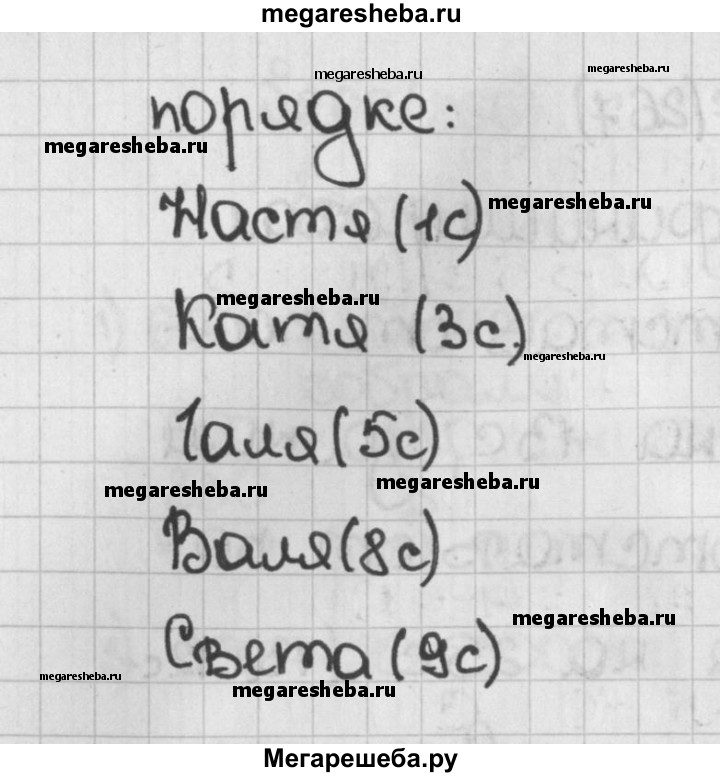 megaresheba.ru
megaresheba.ru
megaresheba.ru
порядке:
megaresheba.ru
Настя (1с)
megaresheba.ru
megaresheba.ru
Катя (3с)
megaresheba.ru
Галя (5с)
megaresheba.ru
megaresheba.ru
Валя (8с)
megaresheba.ru
Света (9с)
megaresheba.ru
megaresheba.ru
Мегарешеба.ру